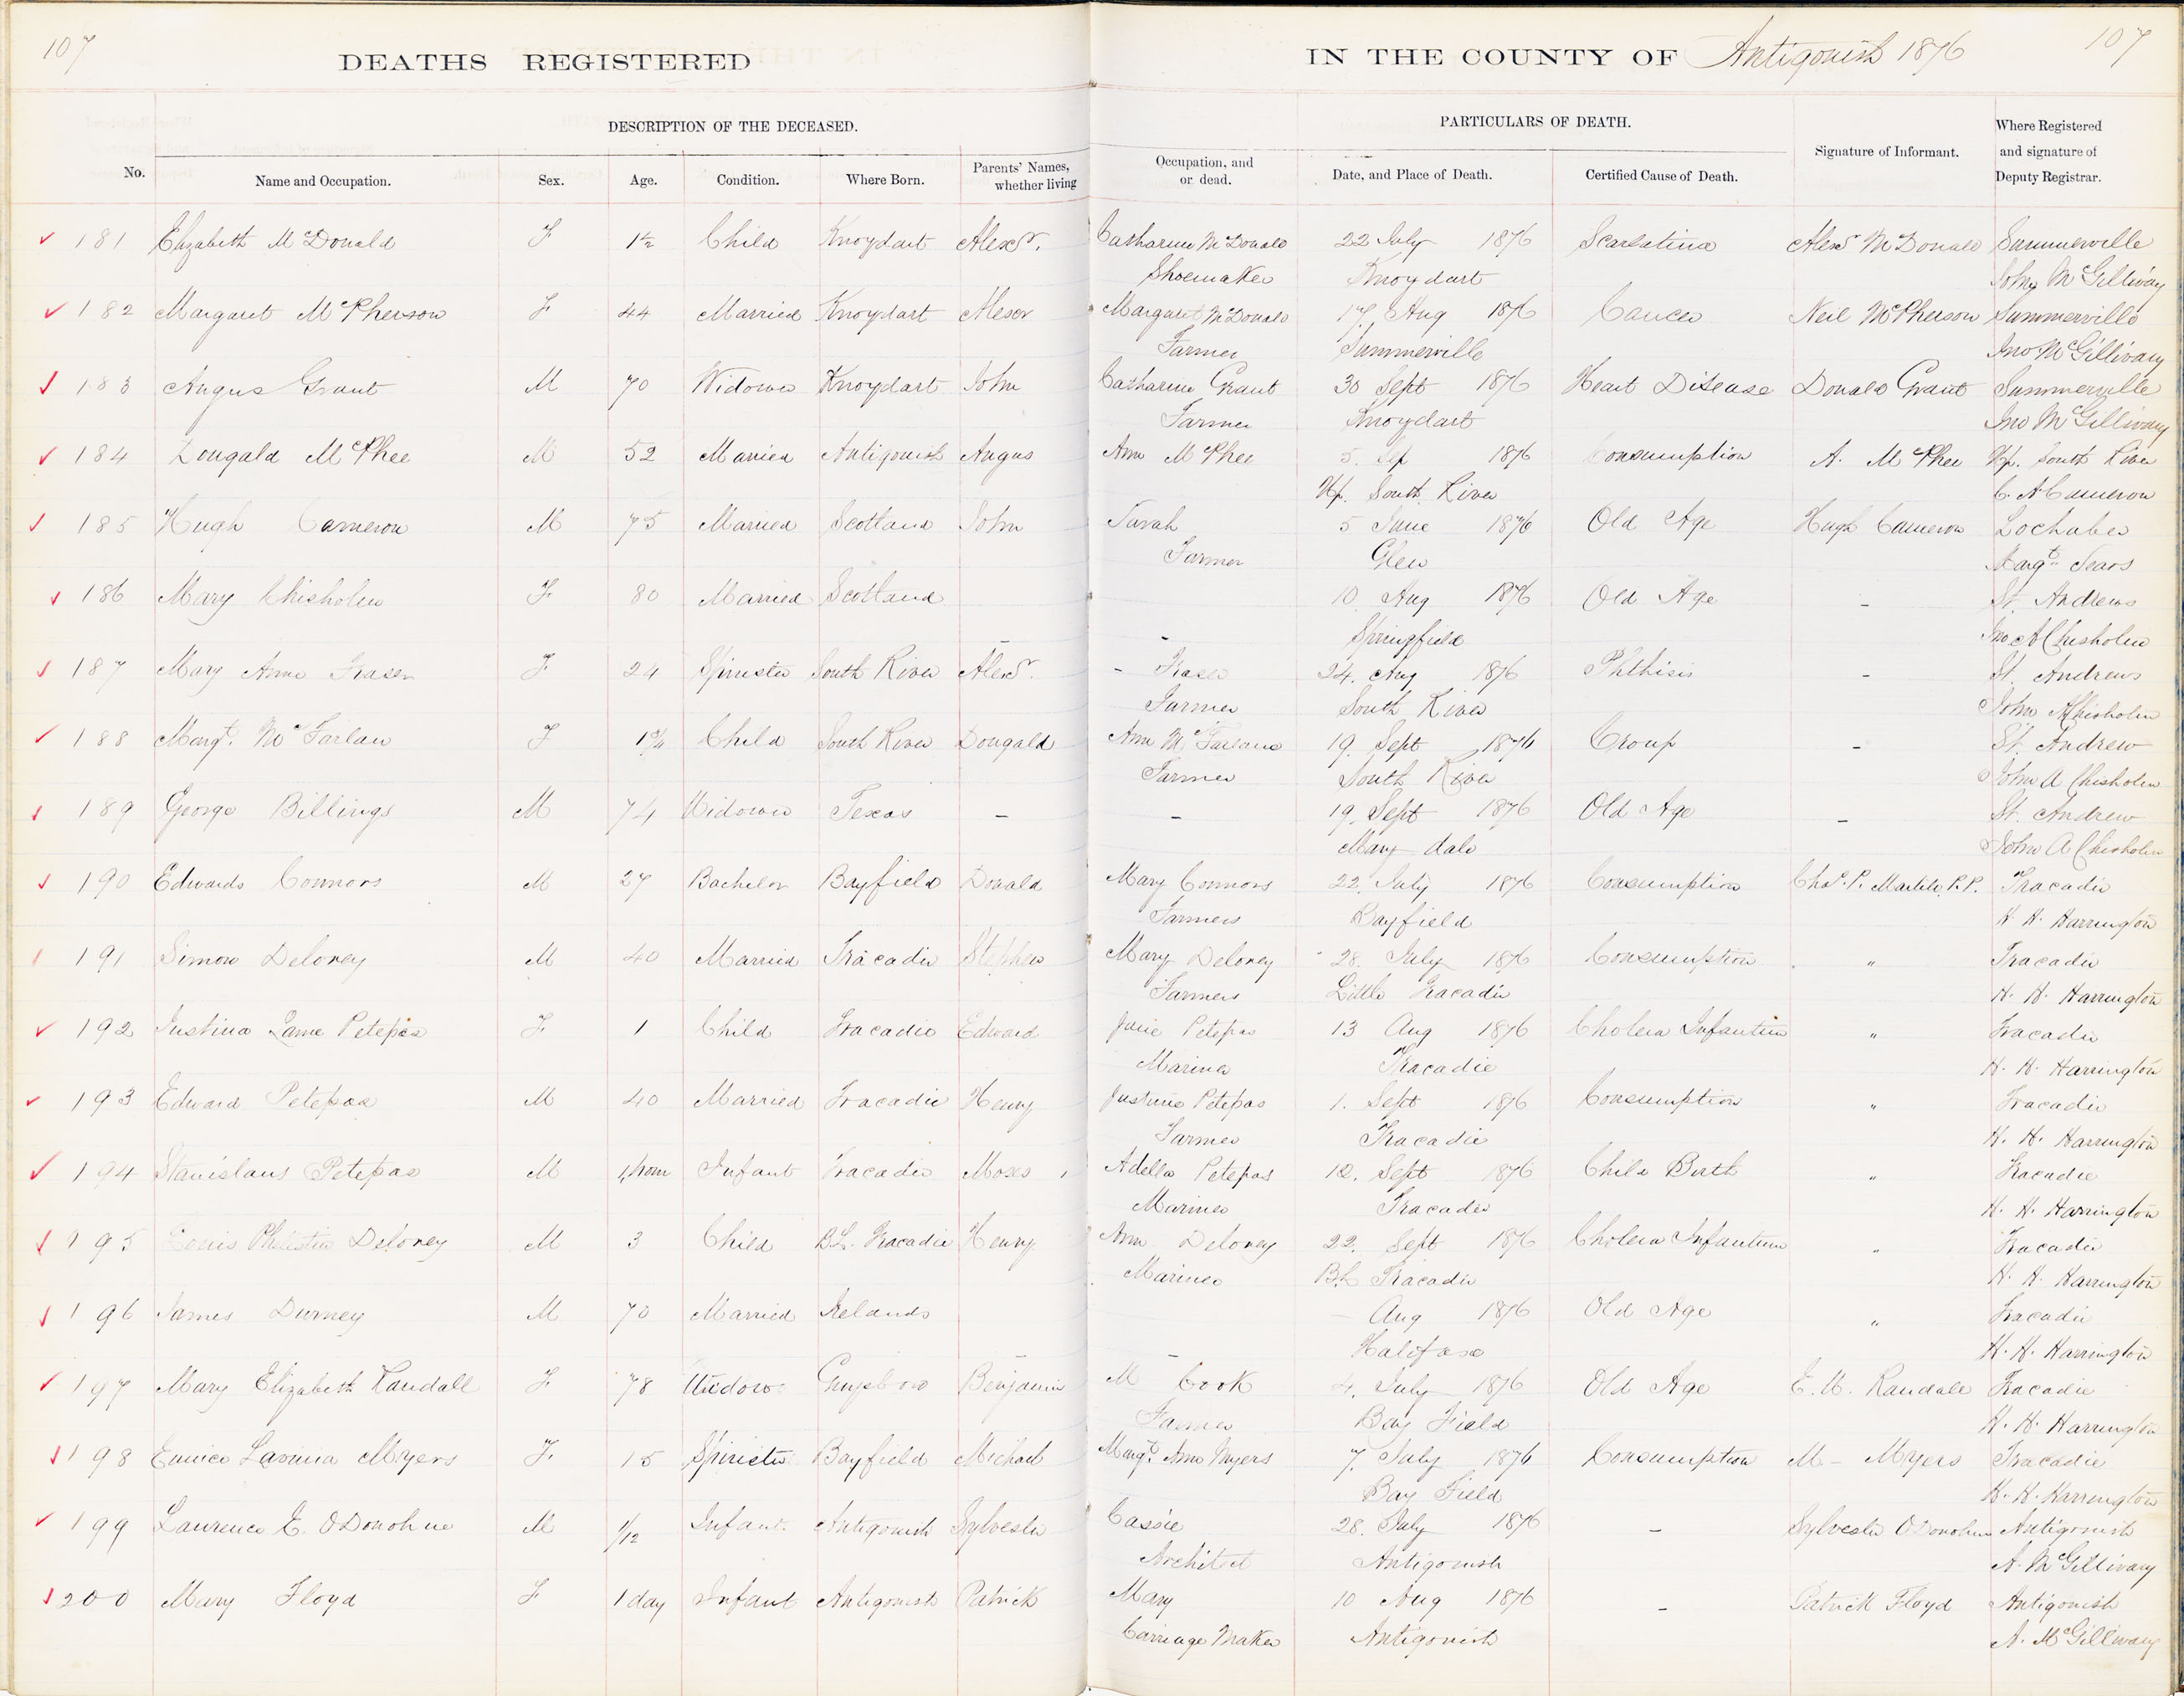 107
DEATHS REGISTERED IN THE COUNTY OF Antigonish 1876
107
DESCRIPTION OF THE DECEASED.
PARTICULARS OF DEATH.
No. Name and Occupation. Sex. Age. Condition. Where Born. Parents' Names, whether living Occupation, and or dead. Date, and Place of Death. Certified Cause of Death. Signature of Informant. Where Registered and signature of Deputy Registrar.
181 Elizabeth McDonald F 1½ Child Knoydart Alexr. Catharine McDonald 22 July 1876 Scarlatina Alexr McDonald Summerville
Shoemaker Knoydart John McGillivay
182 Margaret McPherson F 44 Married Knoydart Alexr Margaret McDonald 17 Aug 1876 Cancer Neil McPherson Summerville
Farmer Summerville Jno McGillivay
183 Angus Grant M 70 Widower Knoydart John Catharine Grant 30 Sept 1876 Heart Disease Donald Grant Summerville
Farmer Knoydart Jno McGillivay
184 Dougald McPhee M 52 Married Antigonish Angus Ann McPhee 5. Sep 1876 Consumption A. McPhee Up. South River
Up. South River C. A Cameron
185 Hugh Cameron M 75 Married Scotland John Sarah 5 June 1876 Old Age Hugh Cameron Lochaber
Farmer Glen Margt. Sears
186 Mary Chisholm F. 80 Married Scotland 10. Aug 1876 Old Age - St. Andrews
- Springfield Jno A Chisholm
187 Mary Anne Fraser F 24 Spinster South River Alexr. - Fraser 24. Aug 1876 Phthisis - St. Andrews
Farmer South River John A Chisholm
188 Margt. McFarlan F 1¾ Child South River Dougald Ann McFarlane 19. Sept 1876 Croup - St. Andrew
Farmer South River John A Chisholm
189 George Billings M 74 Widower Texas - - 19. Sept 1876 Old Age - St. Andrew
Mary dale John A Chisholm
190 Edwards Connors M 27 Bachelor Bayfield Donald Mary Connors 22. July 1876 Consumption Chas. P. Martile, P.P. Tracadie
Farmers Bayfield H. H. Harrington
191 Simon Deloney M 40 Married Tracadie Stephen Mary Deloney 28. July 1876 Consumption " Tracadie
Farmers Little Tracadie H. H. Harrington
192 Justina Jane Petepas F. 1 Child Tracadie Edward Julie Petepas 13 Aug 1876 Cholera Infantum " Tracadie
Mariner Tracadie H. H. Harrington
193 Edward Petepas M 40 Married Tracadie Henry Justine Petepas 1. Sept 1876 Consumption " Tracadie
Farmer Tracadie H. H. Harrington
194 Stanislaus Petepas M 1 hour Infant Tracadie Moses Adella Petepas 12. Sept 1876 Child Birth " Tracadie
Mariner Tracadie H. H. Harrington
195 Louis Philistin Deloney M 3 Child B.L. Tracadie Henry Ann Deloney 22. Sept 1876 Cholera Infantum " Tracadie
Mariner B.L. Tracadie H. H. Harrington
196 James Durney M 70 Married Irelands - Aug 1876 Old Age " Tracadie
- Halifax H. H. Harrington
197 Mary Elizabeth Randall F. 78 Widow Guysboro Benjamin M Cook 4. July 1876 Old Age E. W. Randall Tracadie
Farmer Bay Field H. H. Harrington
198 Eunice Lavinia Myers F. 15 Spinster Bayfield Michael Margt. Ann Myers 7. July 1876 Consumption M- Myers Tracadie
Bay Field H. H. Harrington
199 Laurence E. O'Donohue M 1/12 Infant. Antigonish Sylvester Cassie 28. July 1876 - Sylvester O'Donohue Antigonish
Architect Antigonish A. McGillivay
200 Mary Floyd F 1 day Infant Antigonish Patrick Mary 10 Aug 1876 - Patrick Floyd Antigonish
Carriage Maker Antigonish A. McGillivay